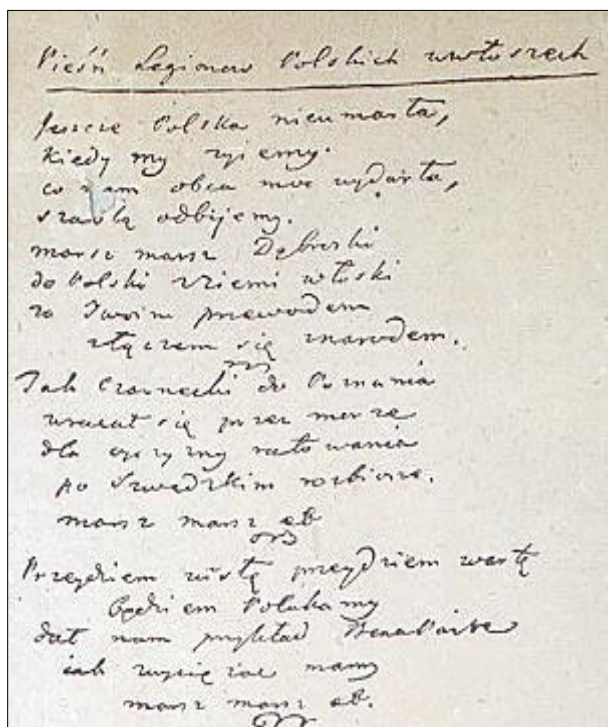 Pieśń Legionow Polskich wewłoszech
Jeszcze Polska nieumarła,
kiedy my żyiemy.
co nam obca moc wydarła,
szablą odbijemy.
marsz marsz Dąbroski
do Polski zziemi włoski
za Twoim przewodem
złączem się znarodem.
Jak Czarnecki do Poznania
wracał się przez morze
dla oyczyzny ratowania
po Szwedzkim rozbiorze.
marsz marsz etc
Przeydziem wisłę przeydziem wartę
będziem Polakamy
dał nam przykład BonaParte
iak zwyciężać mamy
marsz marsz etc.